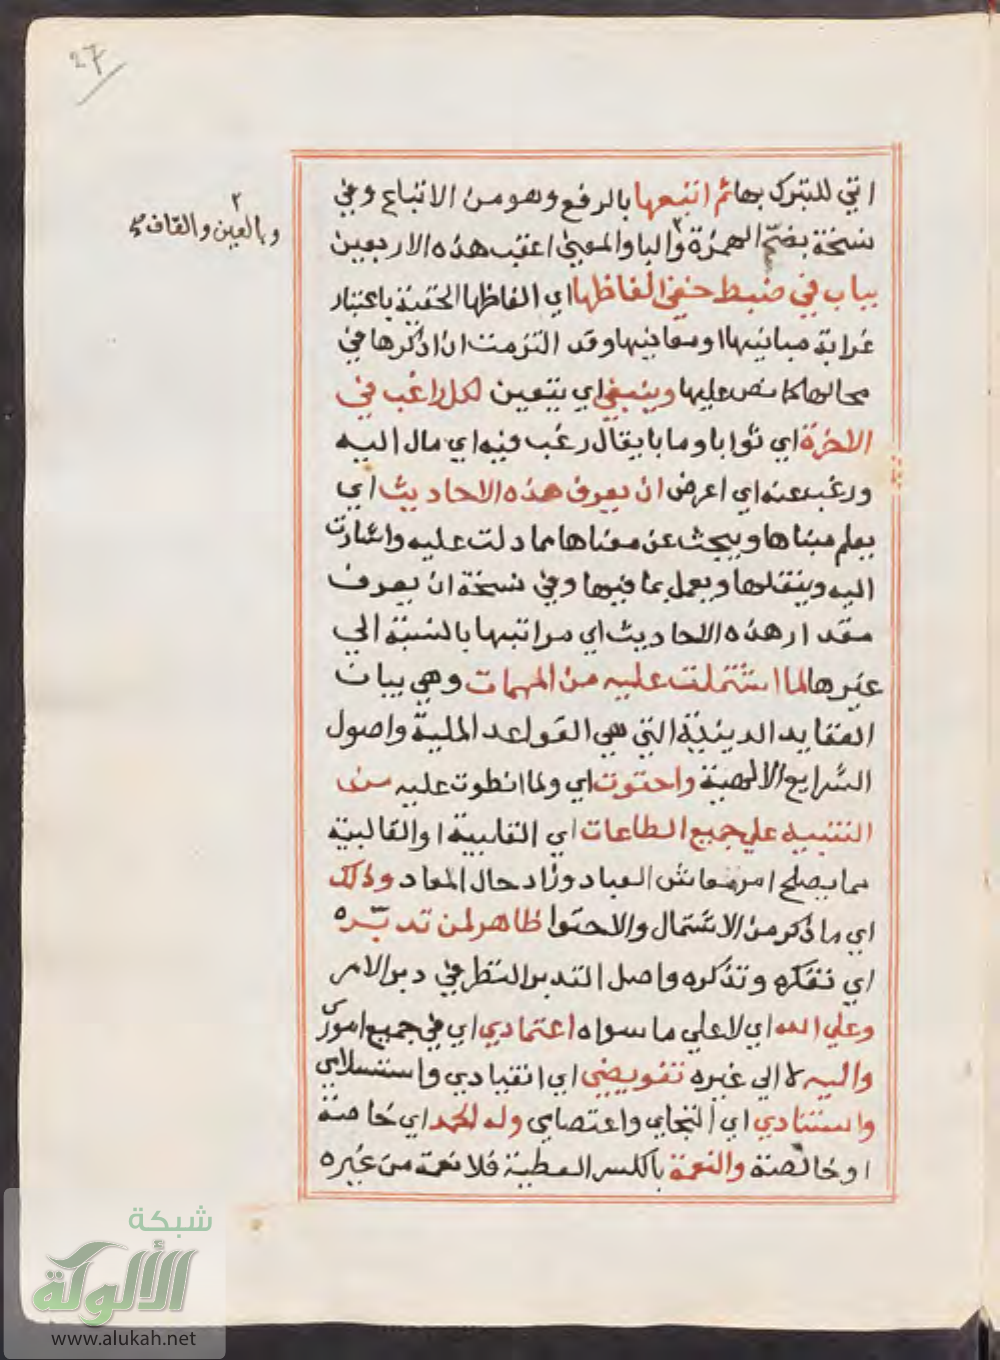 27
اتي للتبرك بها ثم اتبعها بالرفع وهو من الاتباع وفي
نسخة بضم الهمزة ٢ والبا والمعني اعقب هذه الاربعين
٢ وبالعين والقاف صح
بباب في ضبط خفي الفاظها اي الفاظها الخفية باعتبار
غرابة مبانيها او معانيها وقد التزمت ان اذكرها في
محالها كما نص عليها وينبغي اي يتعين لكل راغب في
الاخرة اي ثوابا وما بايقال رغب فيه اي مال اليه
ورغب عنه اي اعرض ان يعرف هذه الاحاديث اي
يعلم مبناها ويبحث عن معناها مما دلت عليه واشارت
اليه وينقلها ويعمل بما فيها وفي نسخة ان يعرف
مقدار هذه الاحاديث اي مراتبها بالنسبة الي
غيرها لما اشتملت عليه من المهمات وهي بيان
العقايد الدينية التي هي القواعد الملية واصول
الشرايع الالهية واحتوت اي ولما انطوت عليه من
التنبيه علي جميع الطاعات اي القلبية او القالبية
مما يصلح امر معاش العباد وزاد حال المعاد وذلك
اي ما ذكر من الاشتمال والاحتوا ظاهر لمن تدبّره
اي تفكره وتذكره واصل التدبر النظر في دبر الامر
وعلي الله اي لا علي ما سواه اعتمادي اي في جميع اموري
واليه لا الي غيره تفويضي اي انقيادي واستسلامي
واستنادي اي التجاي واعتصامي وله الحمد اي خاصة
او خالصة والنعمة بالكسر العطية فلا نعمة من غيره
شبكة
الألوكة
www.alukah.net